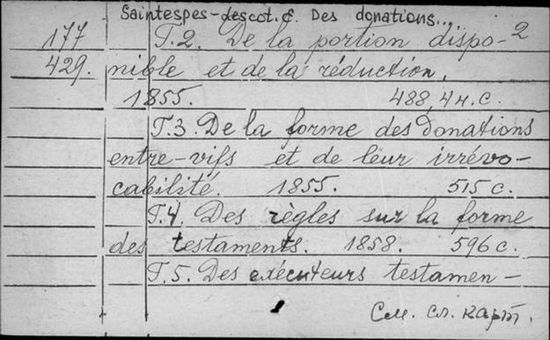 Saintespes-Lescot. E. Des donations...
177 T.2. De la portion dispo- 2
429. nible et de la réduction.
1855. 488, 4 н.с.
T.3. De la forme des donations
entre-vifs et de leur irrévo-
cabilité. 1855. 515 с.
T.4. Des règles sur la forme
des testaments. 1858. 596 с.
T.5. Des exécuteurs testamen-
См. сл. карт.